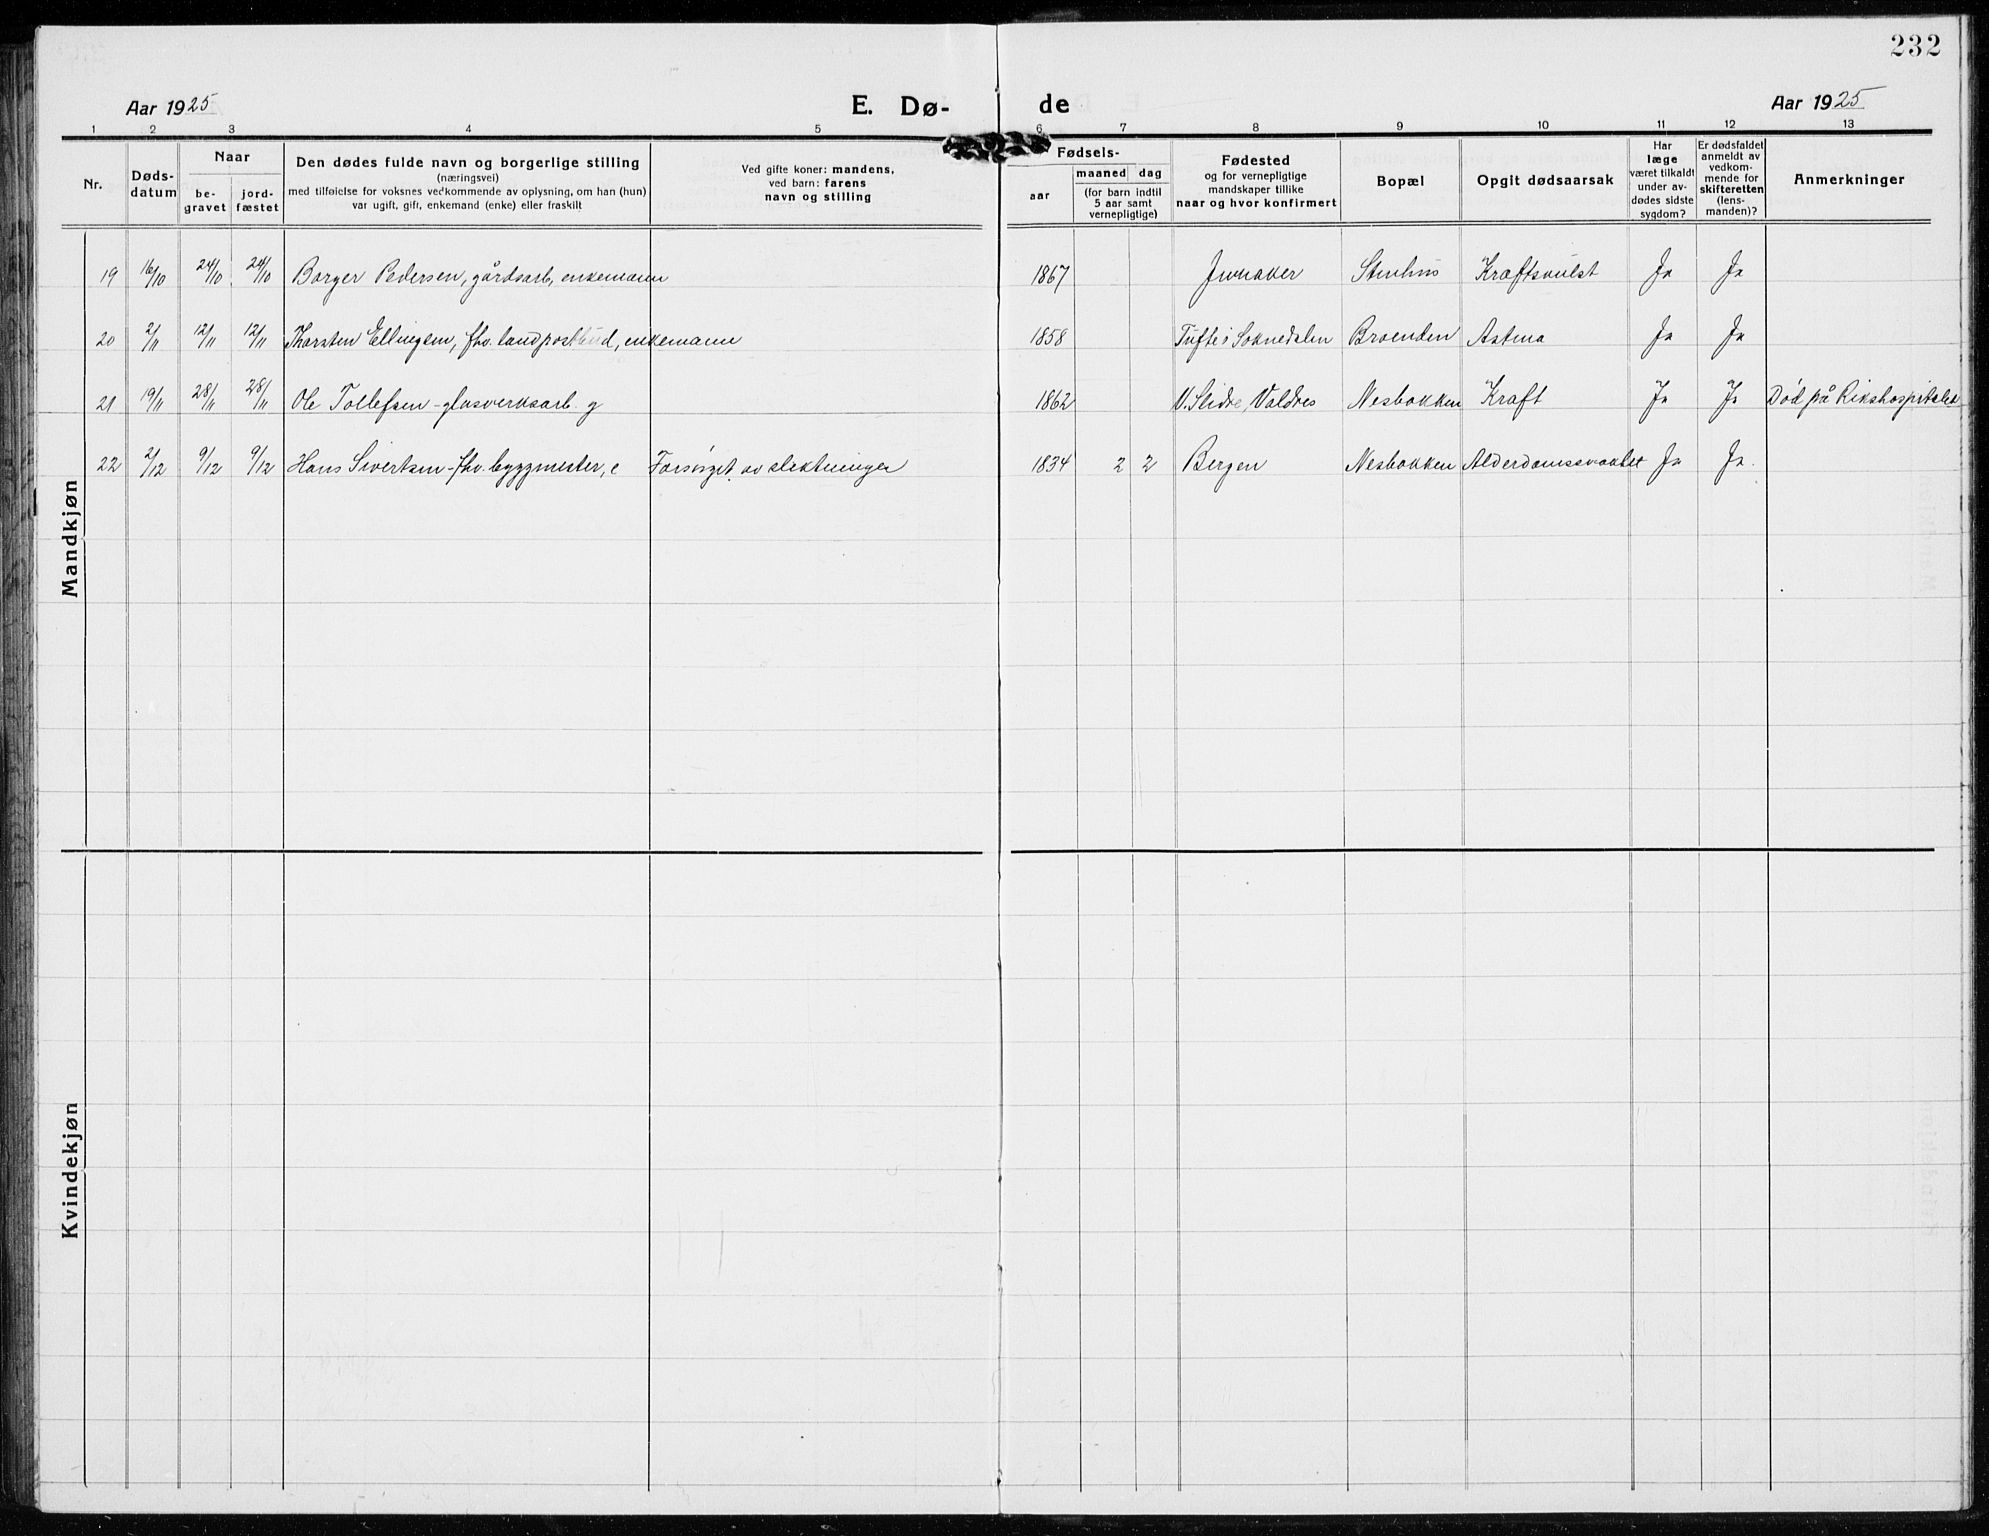 232
Aar 1925 E. Dø- de Aar 1925
1 2 3 4 5 6 7 8 9 10 11 12 13
Nr.
Døds-
datum
Naar
be-
gravet
jord-
fæstet
Den dødes fulde navn og borgerlige stilling
(næringsvei)
med tilføielse for voksnes vedkommende av oplysning, om han (hun)
var ugift, gift, enkemand (enke) eller fraskilt
Ved gifte koner: mandens,
ved barn: farens
navn og stilling
Fødsels-
aar
maaned dag
(for barn indtil
5 aar samt
vernepligtige)
Fødested
og for vernepligtige
mandskaper tillike
naar og hvor konfirmert
Bopæl
Opgit dødsaarsak
Har
læge
været tilkaldt
under av-
dødes sidste
sygdom?
Er dødsfaldet
anmeldt av
vedkom-
mende for
skifteretten
(lens-
manden)?
Anmerkninger
Mandkjøn
19 16/10 24/10 24/10 Borger Pedersen, gårdsarb, enkemann 1867 Jevnaker Stenhus Kræftsvulst Ja Ja
20 2/11 12/11 12/11 Thorsten Ellingsen, fhv. landpostbud, enkemann 1858 Tufte i Soknedalen Braenden Astma Ja Ja
21 19/11 28/11 28/11 Ole Tollefsen - glasverksarb. g 1862 V. Slidre, Valdres Nesbakken Kræft Ja Ja Død på Rikshospitalet
22 2/12 9/12 9/12 Hans Sivertsen - fhv. byggmester, e Forsørget av slektninger 1834 2 2 Bergen Nesbakken Alderdomssvakhet Ja Ja.
Kvindekjøn